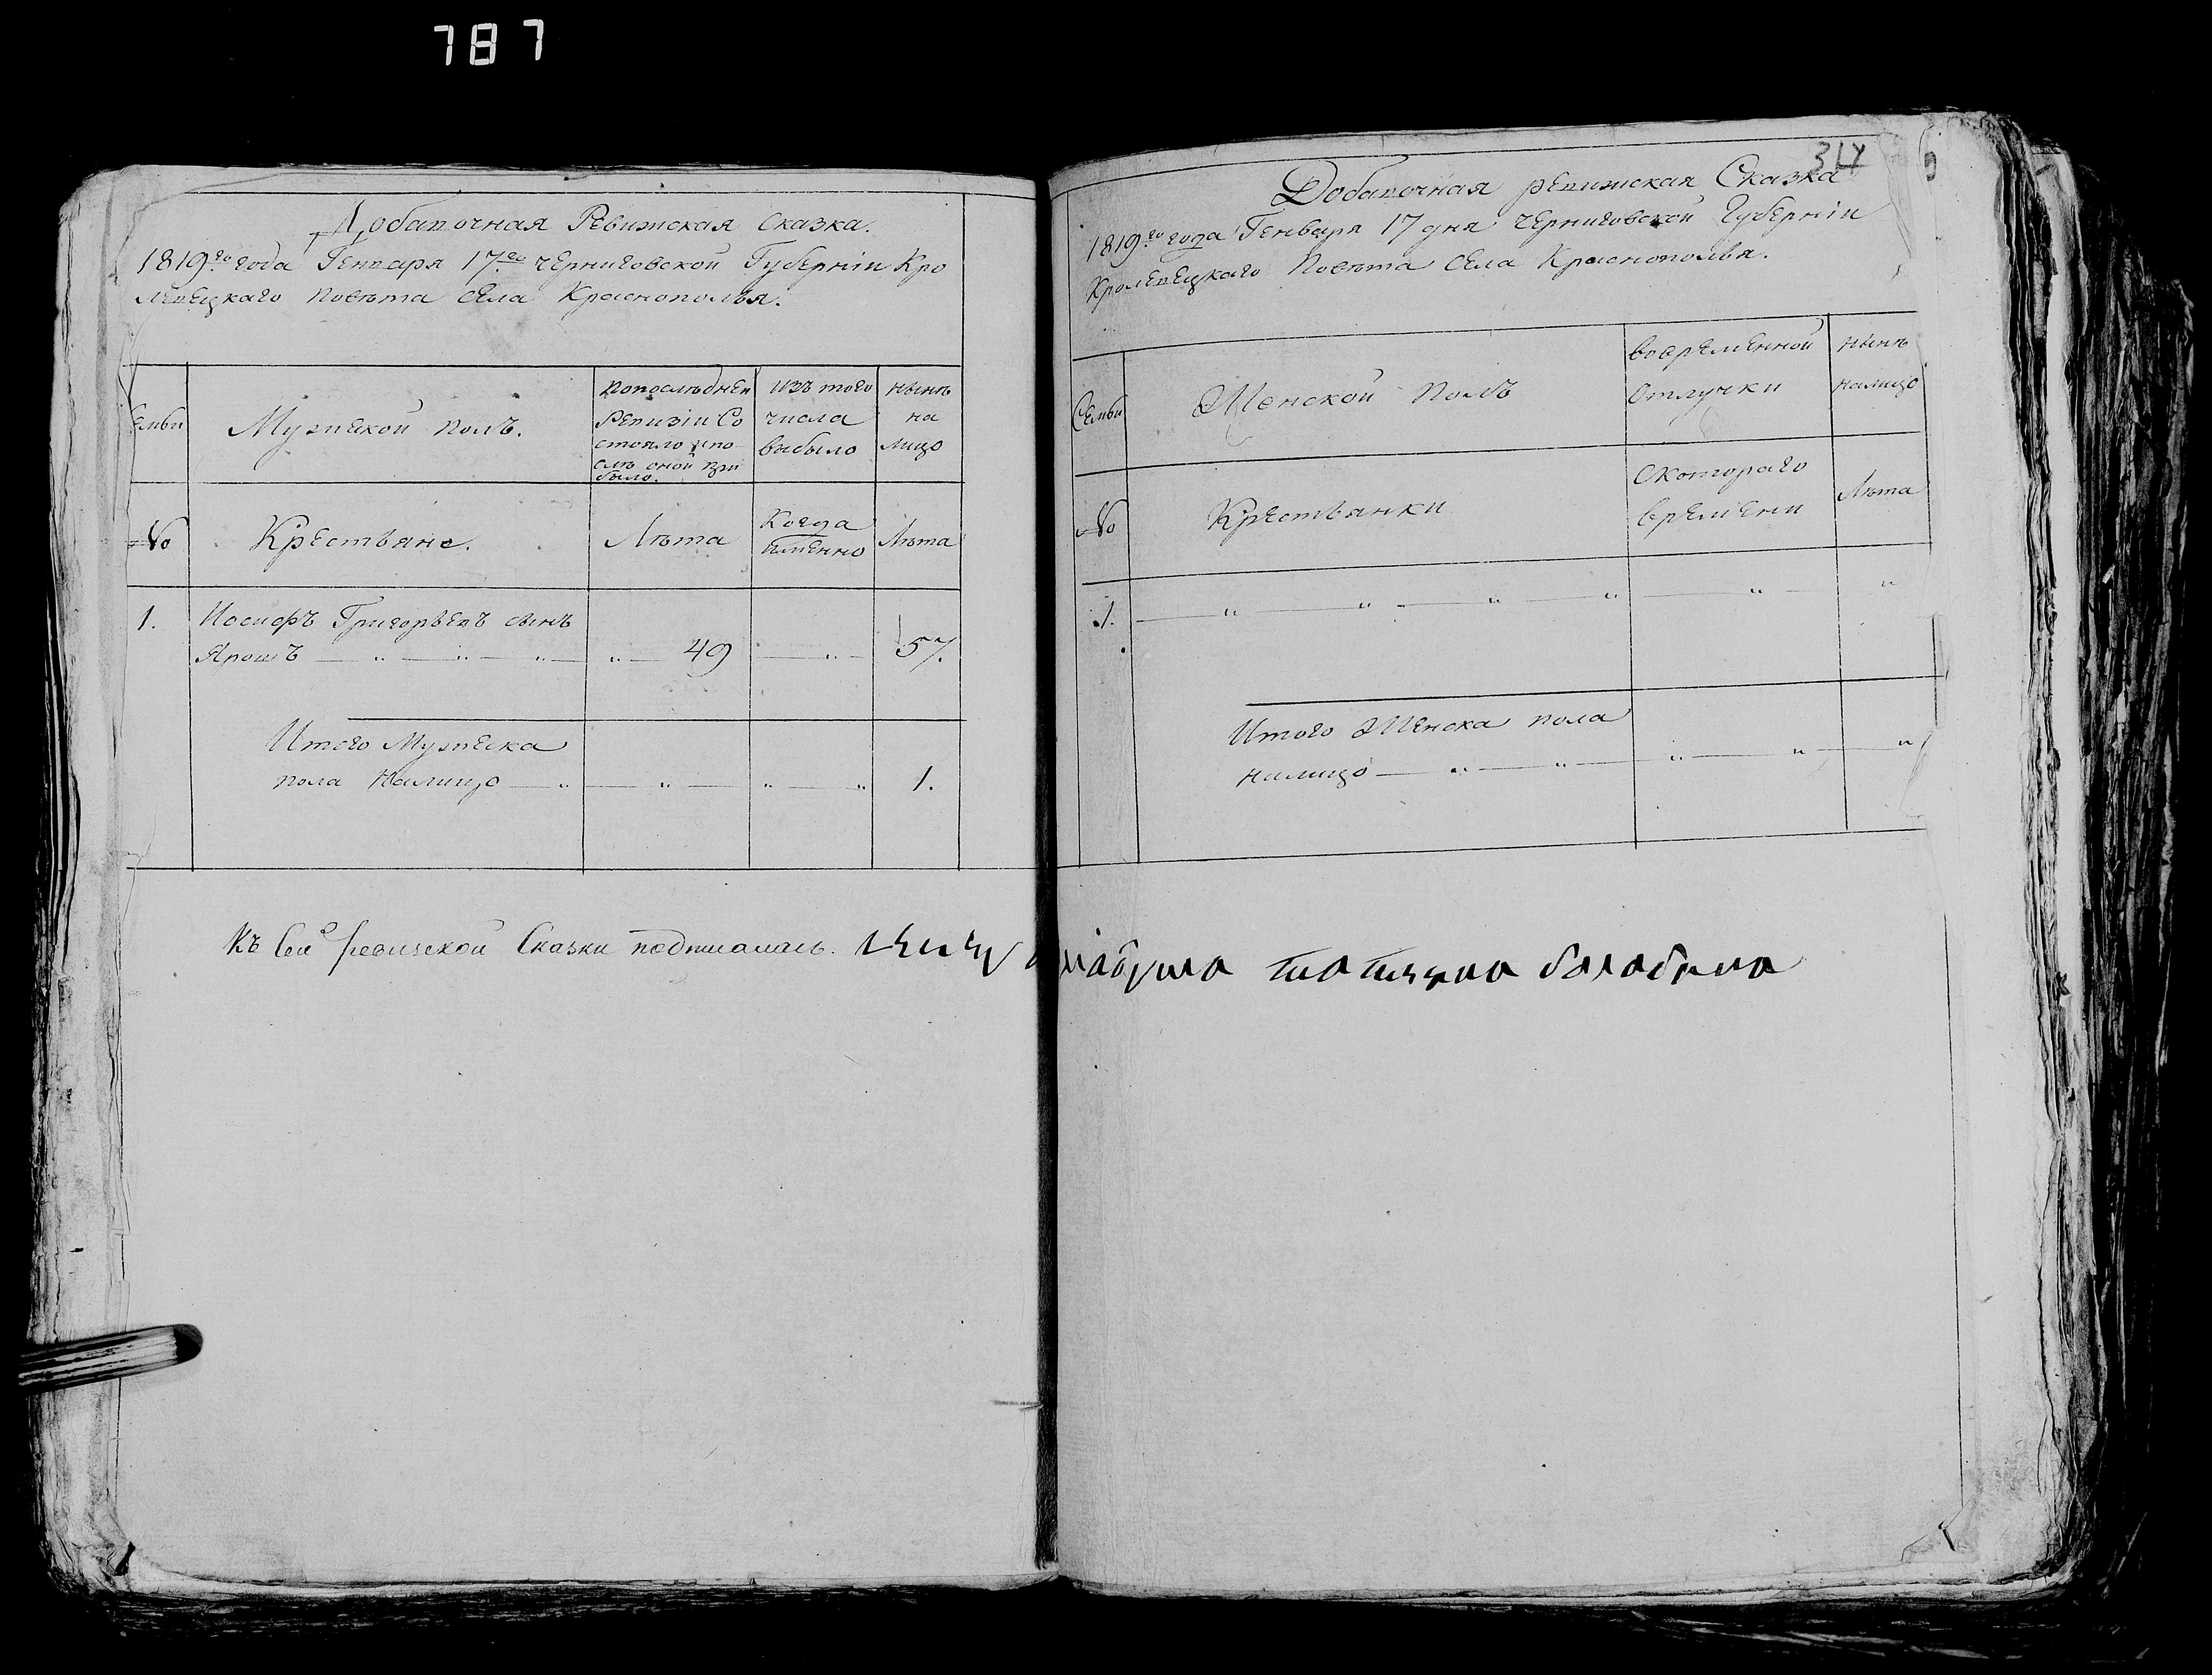 787
Добавочная Ревижская сказка.
1819го года Генваря 17го черниговской Губерніи Кро
левецкаго повѣта села Краснополья.
Семьи
Мужеской полъ.
Попослѣдней
Ревизіи Со
стояло ипо
слѣ оной при
было.
Изъ того
числа
выбыло
нынѣ
на
лицо
№
Крестьяне.
Лѣта
Когда
именно
Лѣта
1.
Иосифъ Григорьевъ сынъ
Ярошъ
49
57.
Итого Мужеска
пола налицо
1.
314
Добавочная ревижская Сказка
1819го года Генваря 17 дня черниговской Губерніи
Кролевецкаго Повѣта села Краснополья.
Семьи
Женской полъ
вовременной
отлучки
нынѣ
налицо
№
Крестьянки
Скотораго
времени
Лѣта
1.
Итого Женска пола
налицо
Къ Сей ревизской Сказки подписалась. татияна балабина